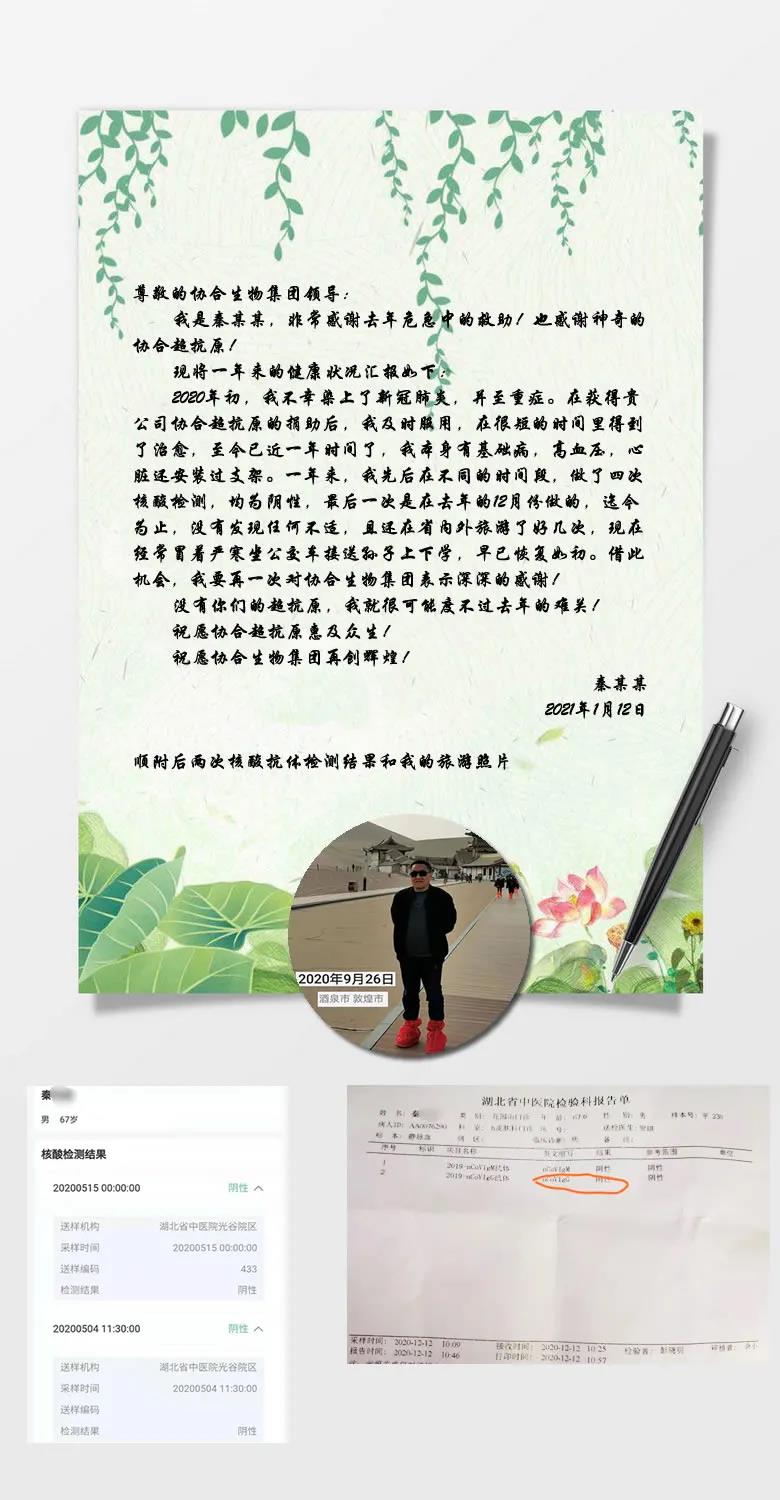 尊敬的协合生物集团领导：
我是秦某某，非常感谢去年危急中的救助！也感谢神奇的
协合超抗原！
现将一年来的健康状况汇报如下：
2020年初，我不幸染上了新冠肺炎，并至重症。在获得贵
公司协合超抗原的捐助后，我及时服用，在很短的时间里得到
了治愈，至今已近一年时间了，我本身有基础病，高血压，心
脏还安装过支架。一年来，我先后在不同的时间段，做了四次
核酸检测，均为阴性，最后一次是在去年的12月份做的，迄今
为止，没有发现任何不适，且还在省内外旅游了好几次，现在
经常冒着严寒坐公交车接送孙子上下学，早已恢复如初。借此
机会，我要再一次对协合生物集团表示深深的感谢！
没有你们的超抗原，我就很可能度不过去年的难关！
祝愿协合超抗原惠及众生！
祝愿协合生物集团再创辉煌！
秦某某
2021年1月12日
顺附后两次核酸抗体检测结果和我的旅游照片
2020年9月26日
酒泉市 敦煌市
秦
男 67岁
核酸检测结果
20200515 00:00:00 阴性
送样机构 湖北省中医院光谷院区
采样时间 20200515 00:00:00
送样编码 433
检测结果 阴性
20200504 11:30:00 阴性
送样机构 湖北省中医院光谷院区
采样时间 20200504 11:30:00
送样编码
检测结果 阴性
湖北省中医院检验科报告单
姓 名：秦 类 别： 年 龄： 性 别：男 样本号：
病人ID：AA0076290 科 室： 床 号： 送检医生：
标 本：静脉血 病 区： 临床诊断： 备 注：
序号 标识 项目名称 英文缩写 结果 参考范围 单位
1 2019-nCoVIgM抗体 nCoVIgM 阴性 阴性
2 2019-nCoVIgG抗体 nCoVIgG 阴性 阴性
采样时间： 2020-12-12 10:09 接收时间： 2020-12-12 10:25 检验者： 审核者：
报告时间： 2020-12-12 10:46 打印时间： 2020-12-12 10:57